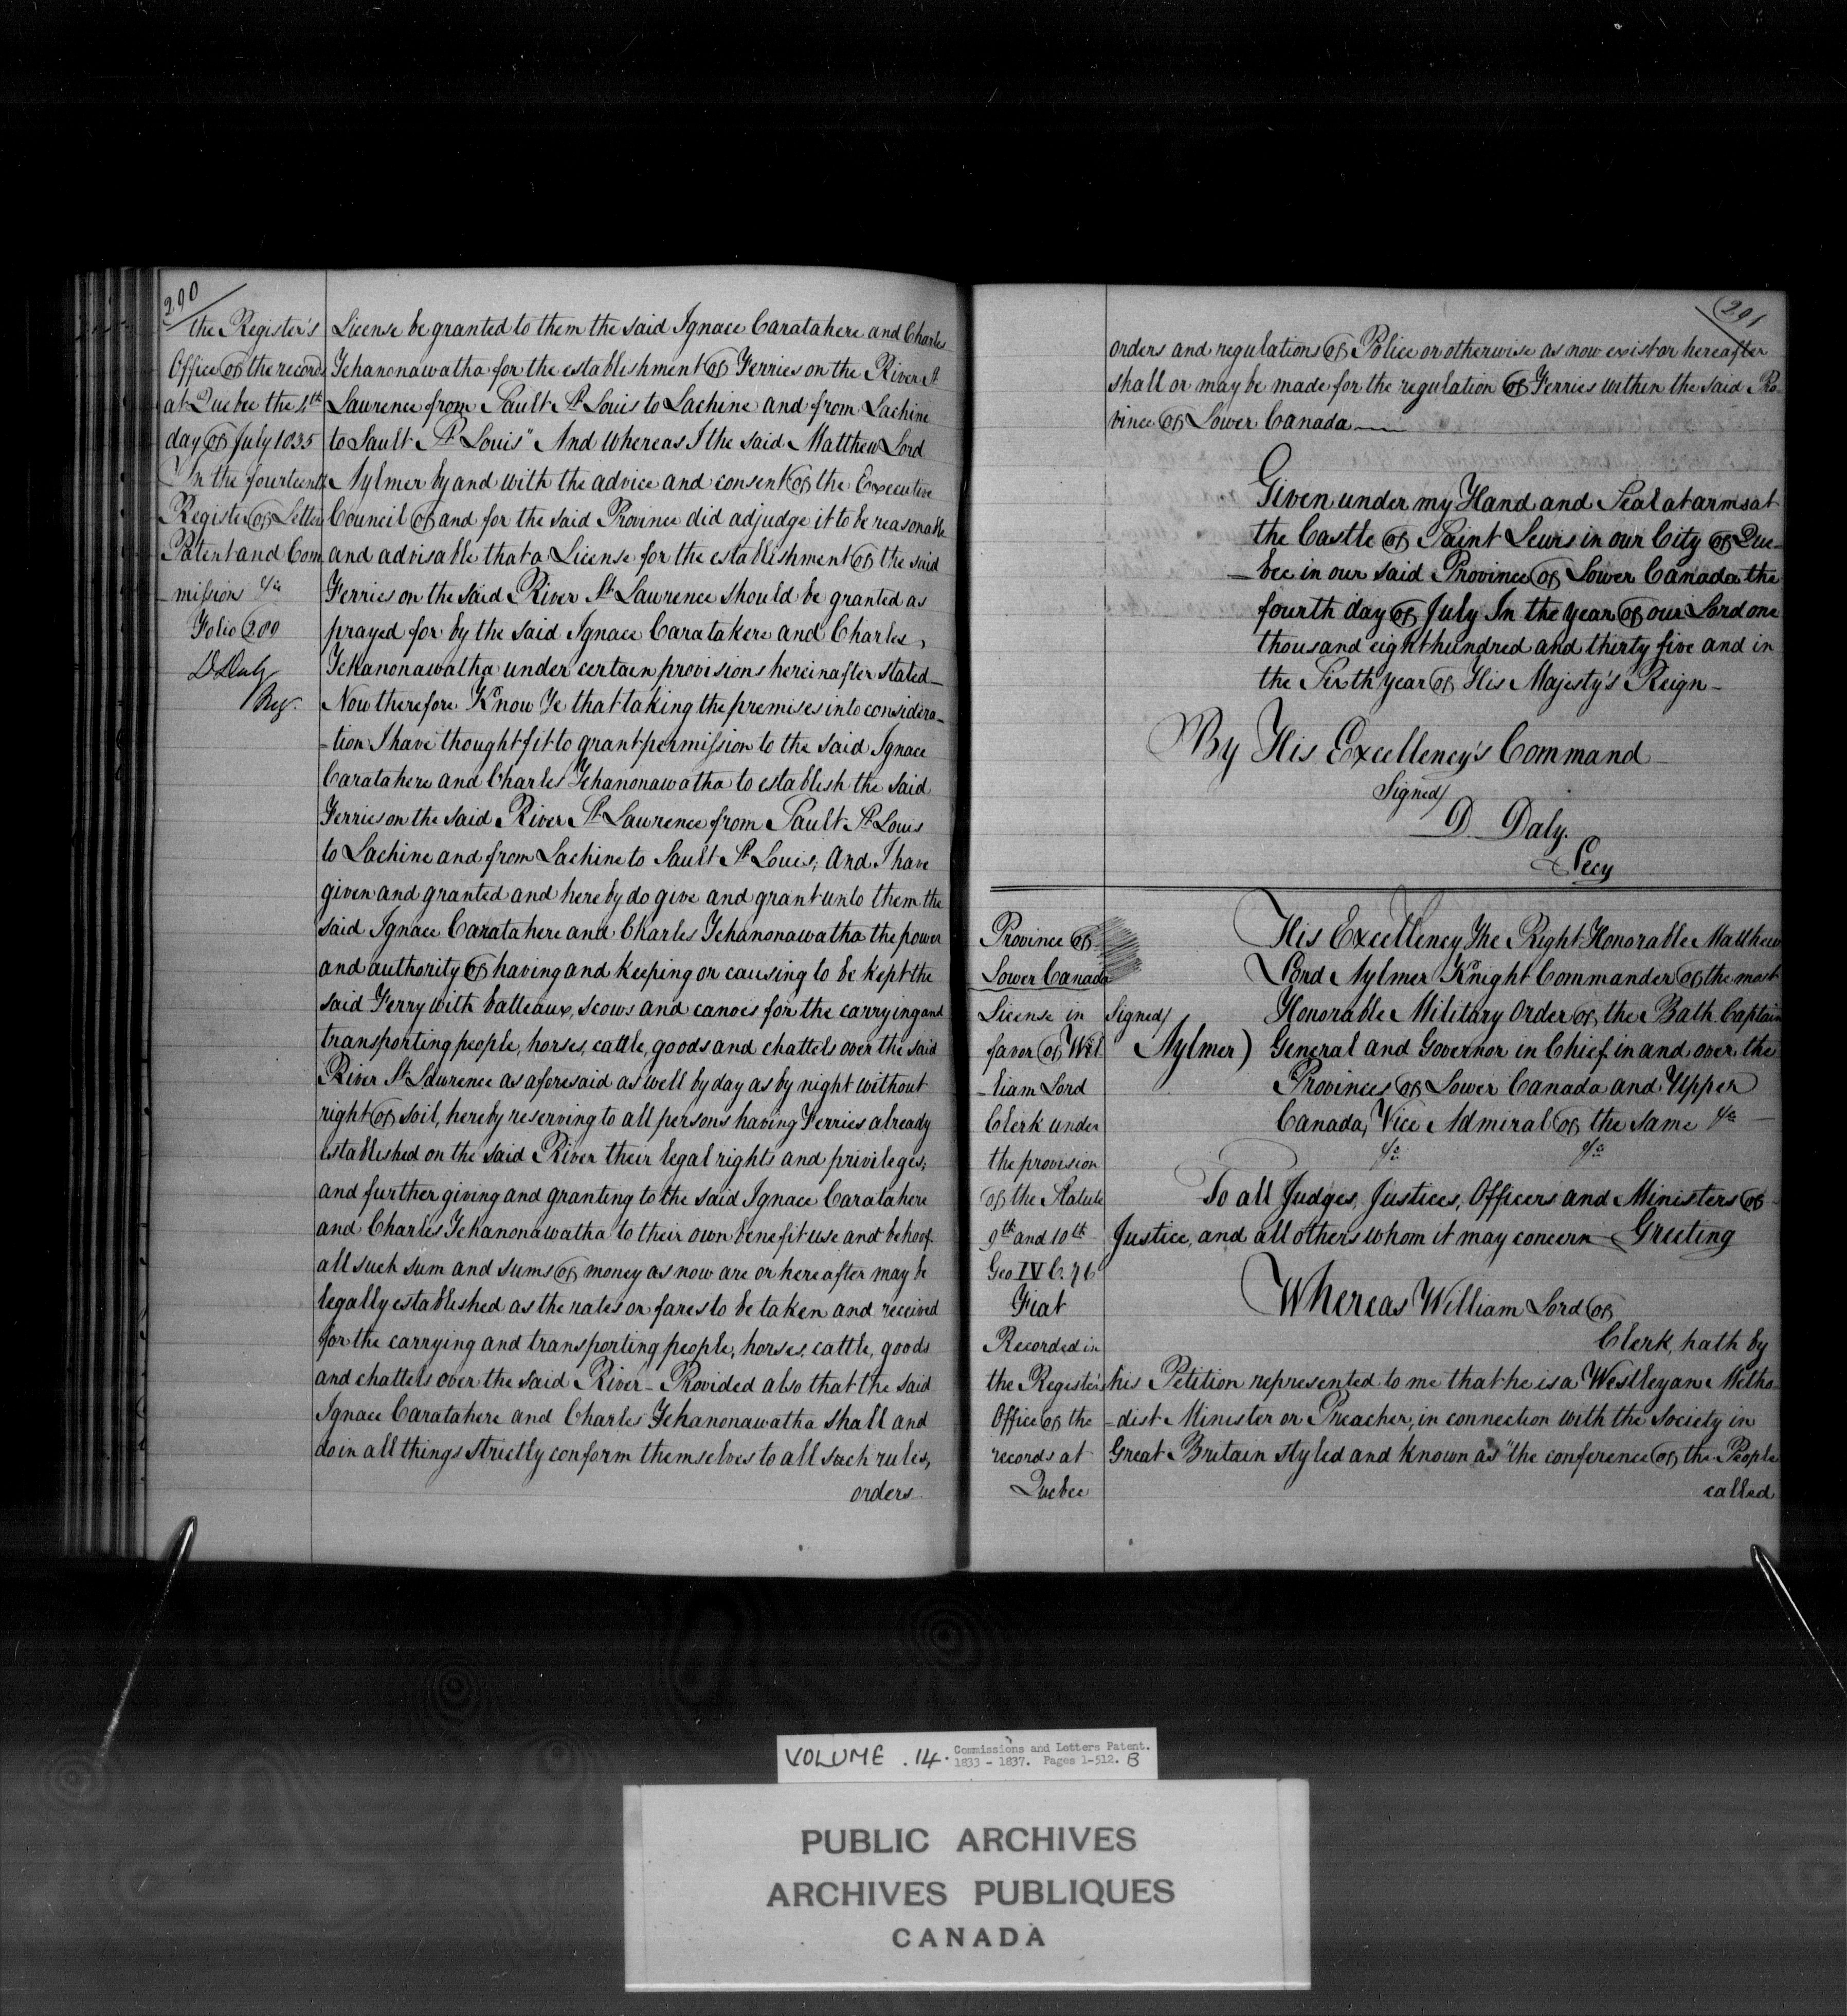 290
the Register's
Office of the records
at Quebec the 4th
day of July 1835
In the fourteenth
Register of Letters
Patent and Com
missions &a
Folio 289
D Daly
Reg.
License be granted to them the said Ignace Caratahere and Charles
Tehanonawatha for the establishment of Ferries on the River St
Lawrence from Sault St Louis to Lachine and from Lachine
to Sault St Louis" And whereas I the said Matthew Lord
Aylmer by and with the advice and consent of the Executive
Council of and for the said Province did adjudge it to be reasonable
and advisable that a License for the establishment of the said
Ferries on the said River St Lawrence should be granted as
prayed for by the said Ignace Caratakere and Charles
Tehanonawatha under certain provisions hereinafter stated—
Now therefore Know Ye that taking the premises into considera-
-tion I have thought fit to grant permission to the said Ignace
Caratahere and Charles Tehanonawatha to establish the said
Ferries on the said River St Lawrence from Sault St Louis
to Lachine and from Lachine to Sault St Louis; And I have
given and granted and hereby do give and grant unto them the
said Ignace Caratahere and Charles Tehanonawatha the power
and authority of having and keeping or causing to be kept the
said Ferry with batteaux, scows and canoes for the carrying and
transporting people, horses, cattle, goods and chattels over the said
River St Lawrence as aforesaid as well by day as by night without
right of soil, hereby reserving to all persons having Ferries already
established on the said River their legal rights and privileges;
and further giving and granting to the said Ignace Caratahere
and Charles Tehanonawatha to their own benefit use and behoof
all such sum and sums of money as now are or hereafter may be
legally established as the rates or fares to be taken and received
for the carrying and transporting people, horses, cattle, goods
and chattels over the said River - Provided also that the said
Ignace Caratahere and Charles Tehanonawatha shall and
do in all things strictly conform themselves to all such rules,
orders
291
orders and regulations of Police or otherwise as now exist or hereafter
shall or may be made for the regulation of Ferries within the said Pro-
vince of Lower Canada
Given under my Hand and Seal at arms at
the Castle of Saint Lewis in our City of Que-
-bec in our said Province of Lower Canada the
fourth day of July In the year of our Lord one
thousand eight hundred and thirty five and in
the Sixth year of His Majesty's Reign -
By His Excellency's Command
Signed/
D Daly.
Secy
Province of
Lower Canada
License in
favor of Wil
-liam Lord
Clerk under
the provision
of the Statute
9th and 10th
Geo IV C. 76
Fiat
Recorded in
the Register's
Office of the
records at
Quebec
Signed/
Aylmer)
His Excellency The Right Honorable Matthew
Lord Aylmer Knight Commander of the most
Honorable Military Order of the Bath Captain
General and Governor in Chief in and over the
Provinces of Lower Canada and Upper
Canada, Vice Admiral of the same &a
&a &a
To all Judges, Justices, Officers and Ministers of
Justice, and all others whom it may concern Greeting
Whereas William Lord of
Clerk, hath by
his Petition represented to me that he is a Westleyan Metho-
-dist Minister or Preacher, in connection with the Society in
Great Britain styled and known as "the conference of the People
called
VOLUME . 14. Commissions and Letters Patent.
1833 - 1837. Pages 1-512. B
PUBLIC ARCHIVES
ARCHIVES PUBLIQUES
CANADA